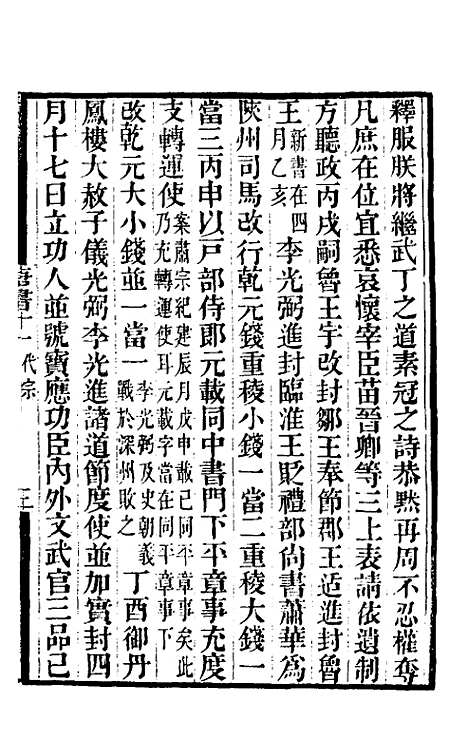 釋服朕將繼武丁之道素冠之詩恭默再周不忍權奪
凡庶在位宜悉哀懷宰臣苗晉卿等三上表請依遺制
方聽政丙戌嗣魯王宇改封鄒王奉節郡王适進封魯
王新書在四月乙亥李光弼進封臨淮王貶禮部尚書蕭華爲
陝州司馬改行乾元錢重稜小錢一當二重稜大錢一
當三丙申以戸部侍郎元載同中書門下平章事充度
支轉運使案肅宗紀建辰月戊申載已同平章事矣此乃充轉運使耳元載字當在同平章事下
改乾元大小錢並一當一李光弼及史朝義戰於深州敗之丁酉御丹
鳳樓大赦子儀光弼李光進諸道節度使並加實封四
月十七日立功人並號寶應功臣內外文武官三品已
唐書十一代宗
三